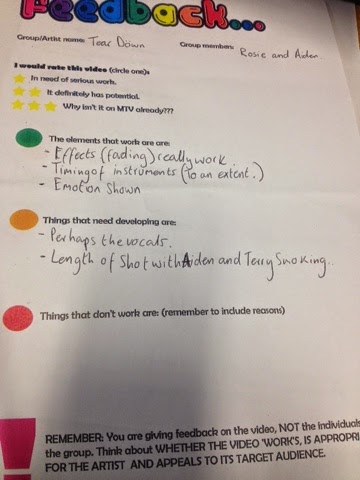 Feedback...
Group/Artist name: Tear Down Group members: Rosie and Aiden
I would rate this video (circle one):
In need of serious work.
It definitely has potential.
Why isn't it on MTV already???
The elements that work are are:
- Effects (fading) really work.
- Timing of instruments (to an extent.)
- Emotion Shown
Things that need developing are:
- Perhaps the vocals.
- Length of Shot with Aiden and Terry Smoking..
Things that don't work are: (remember to include reasons)
! REMEMBER: You are giving feedback on the video, NOT the individuals
the group. Think about WHETHER THE VIDEO 'WORK'S, IS APPROPRI
FOR THE ARTIST AND APPEALS TO ITS TARGET AUDIENCE.